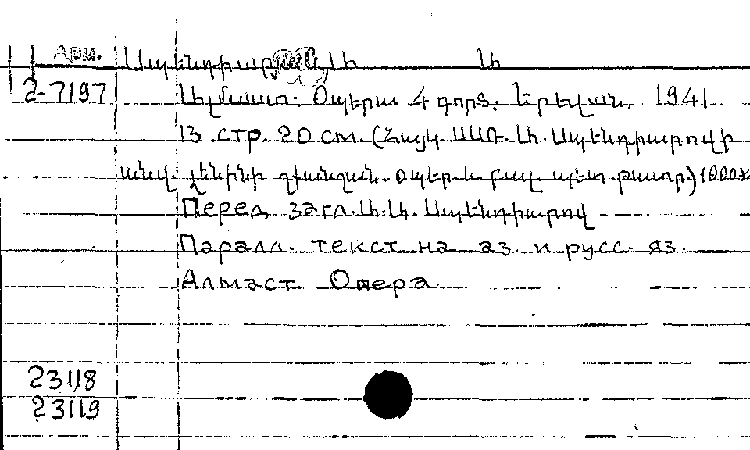 Арм. Սպենդիար
2-7197 Ալմաստ. Օպերա 4 գործ. Երևան, 1941
13 стр. 20 см. (Հայկ. ՍՍՌ Ա. Սպենդիարովի
անվ. լենինի շքանշան. օպեր. և բալ. պետ. թատր.) 1000
Перед загл. Ա. Ա. Սպենդիարով
Паралл. текст на аз. и русс. яз.
Алмаст Опера
23118
23119